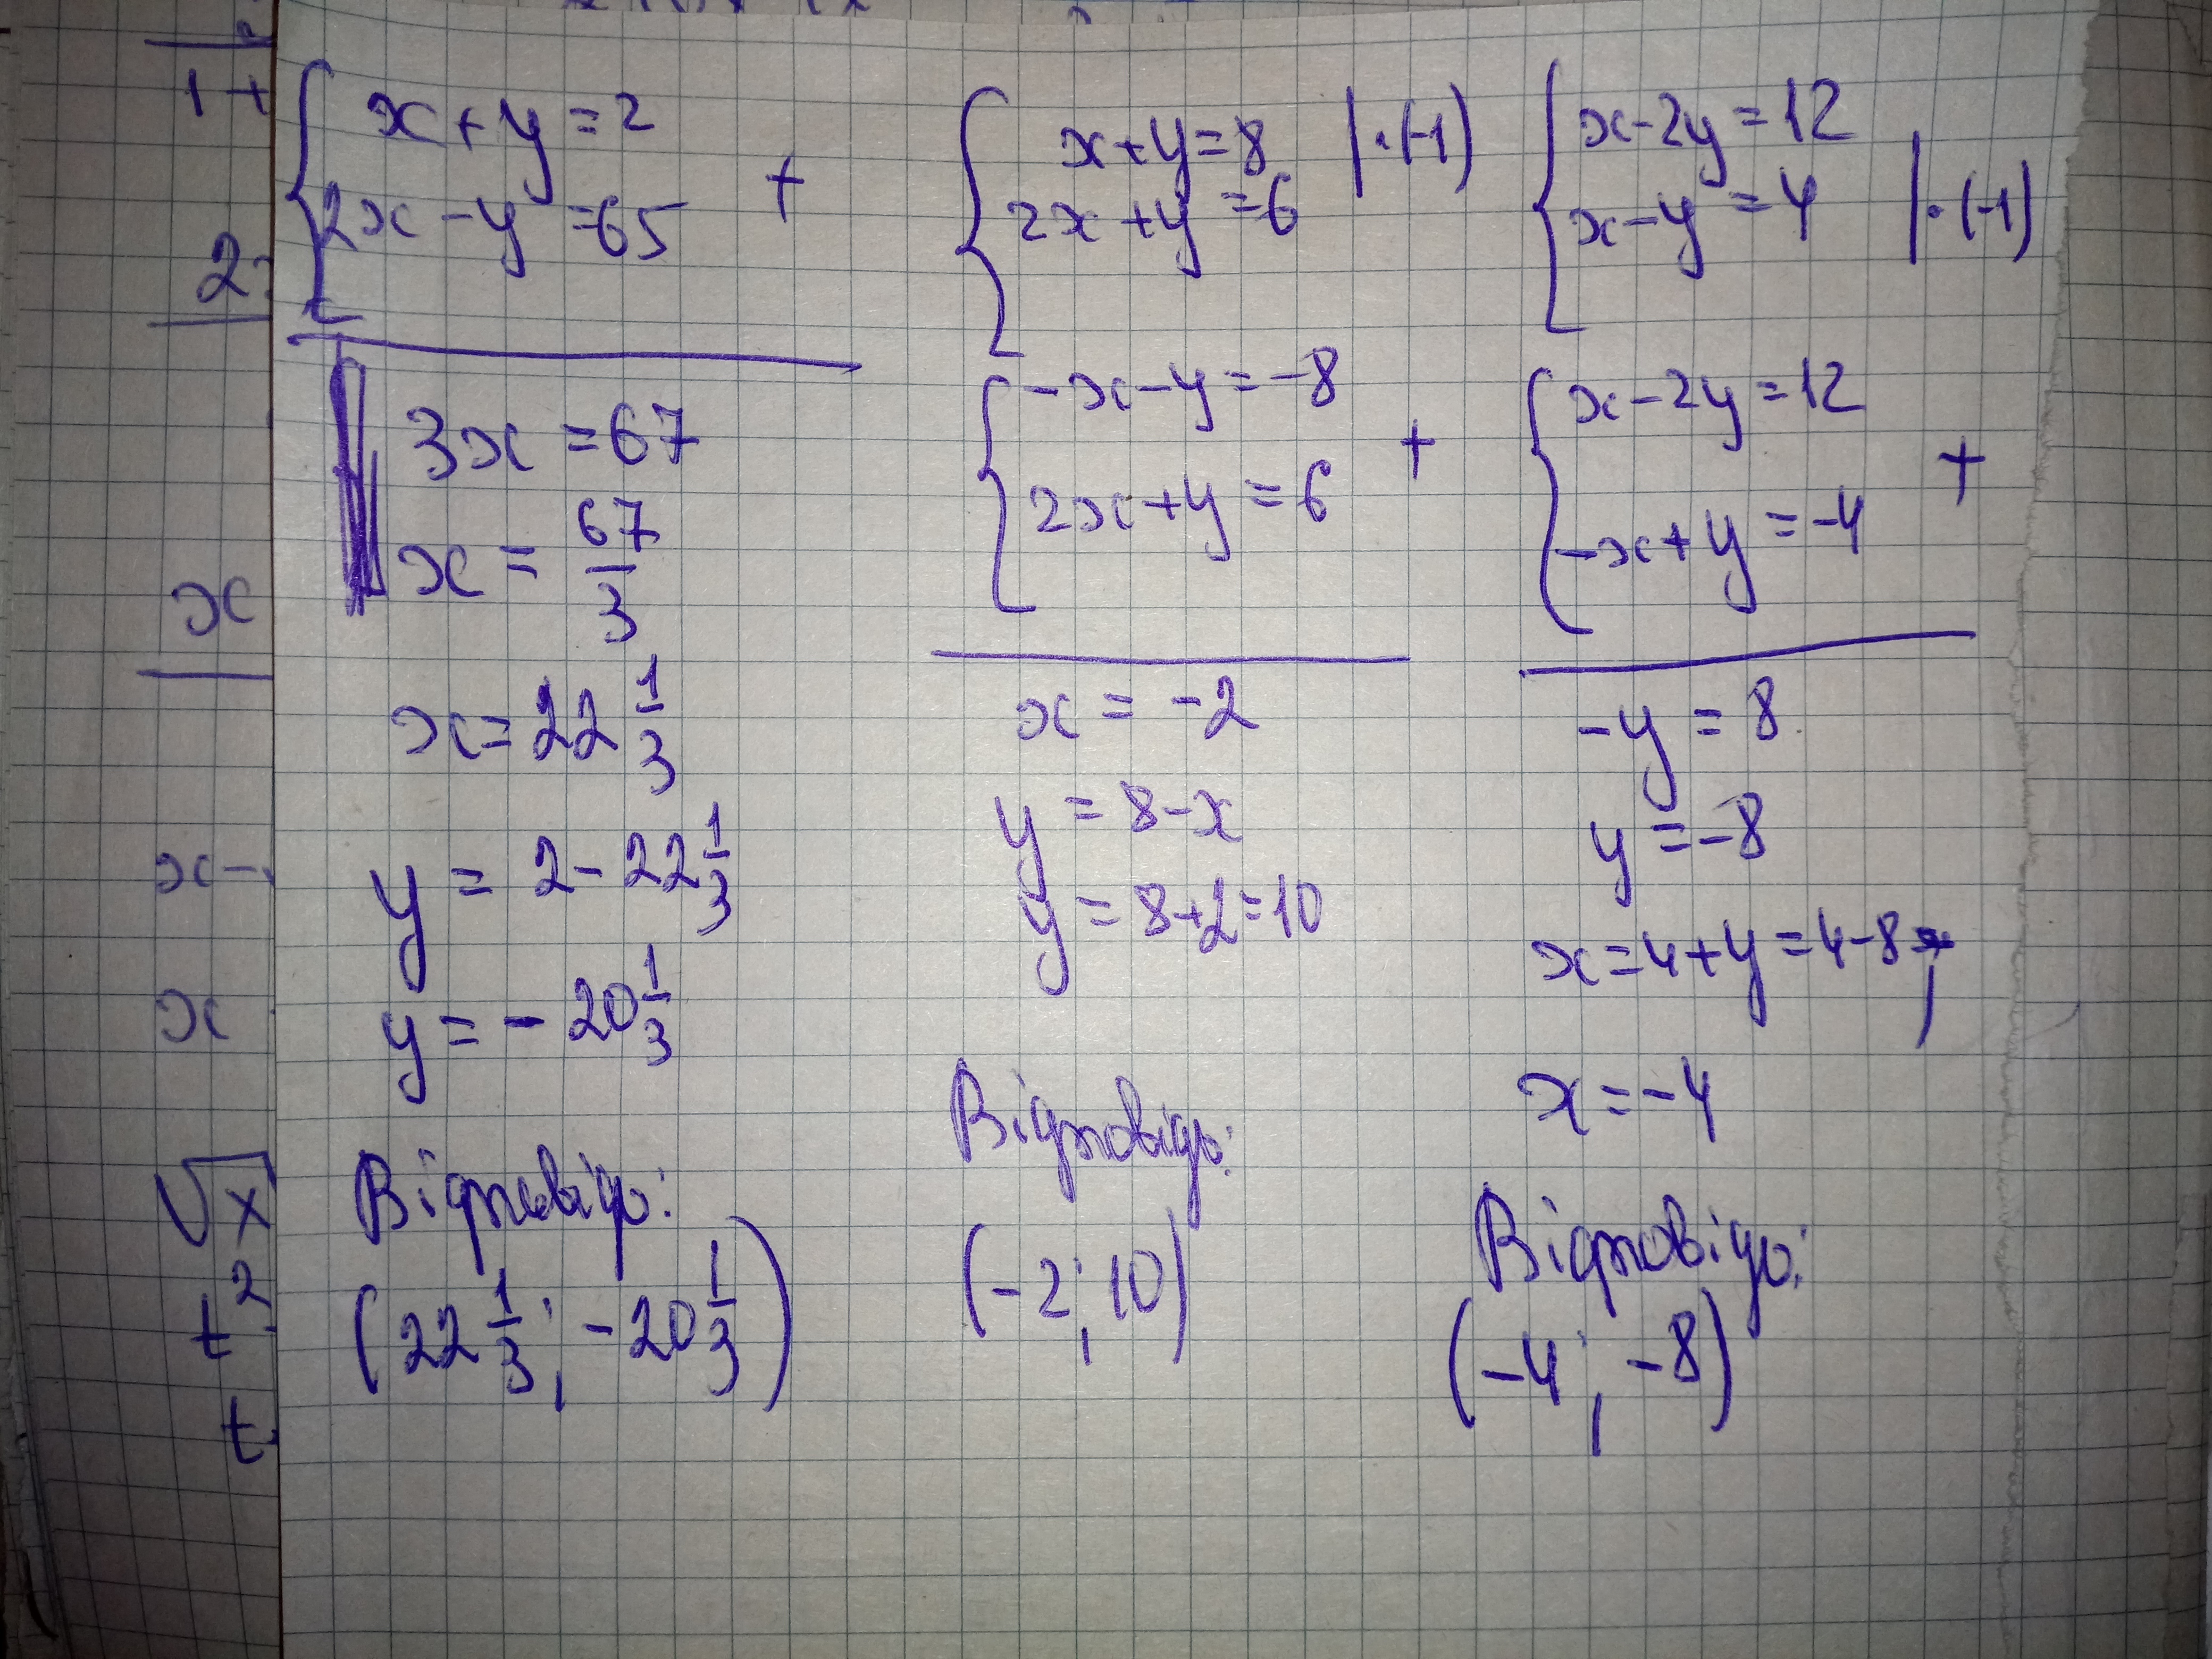 x+y=2
2x-y=65
+
3x=67
x=67/3
x=22 1/3
y=2-22 1/3
y=-20 1/3
Відповідь:
(22 1/3; -20 1/3)
x+y=8 |·(-1)
2x+y=6
-x-y=-8
2x+y=6
+
x=-2
y=8-x
y=8+2=10
Відповідь:
(-2; 10)
x-2y=12
x-y=4 |·(-1)
x-2y=12
-x+y=-4
+
-y=8
y=-8
x=4+y=4-8
x=-4
Відповідь:
(-4; -8)
1+
2
x
x-
x
√x
t²
t